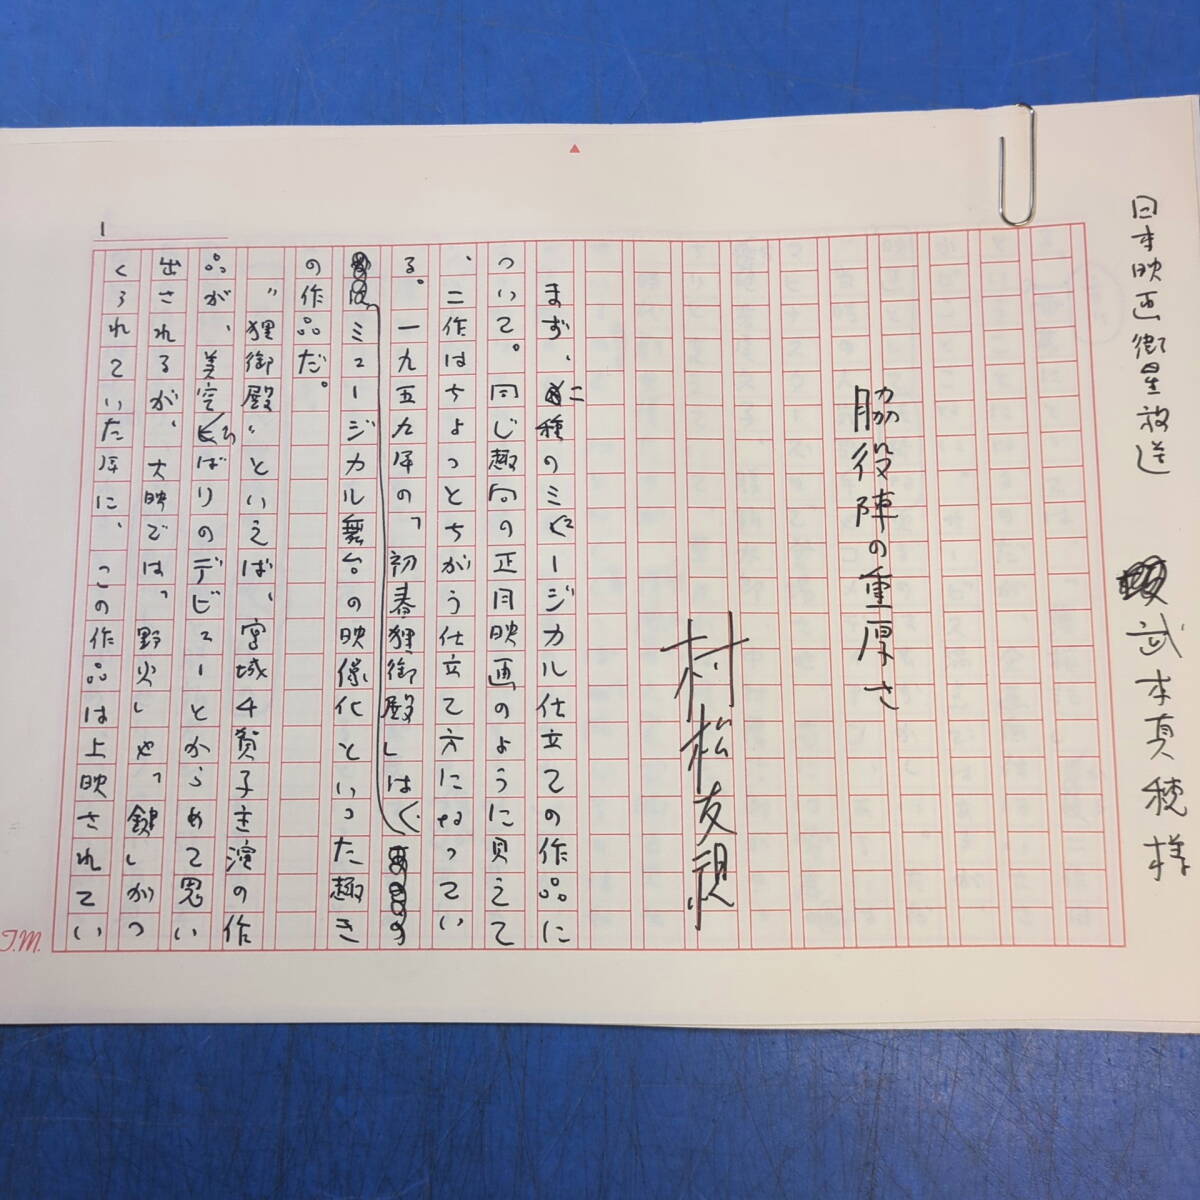 日本映画衛星放送 武本真穂様
脇役陣の重厚さ
村松友視
まず、二種のミュージカル仕立ての作品に
ついて。同じ趣向の正月映画のように見えて
、二作はちょっとちがう仕立て方になってい
る。一九五九年の「初春狸御殿」は、
ミュージカル舞台の映像化といった趣き
の作品だ。
〝狸御殿〟といえば、宮城千賀子主演の作
品が、美空ひばりのデビューとからめて思い
出されるが、大映では、「野火」や「鍵」がつ
くられていた年に、この作品は上映されてい
1
T.M.